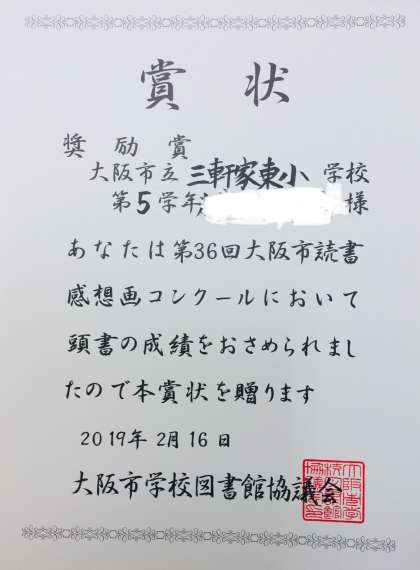 賞状
奨励賞
大阪市立三軒家東小学校
第5学年 様
あなたは第36回大阪市読書
感想画コンクールにおいて
頭書の成績をおさめられまし
たので本賞状を贈ります
2019年2月16日
大阪市学校図書館協議会